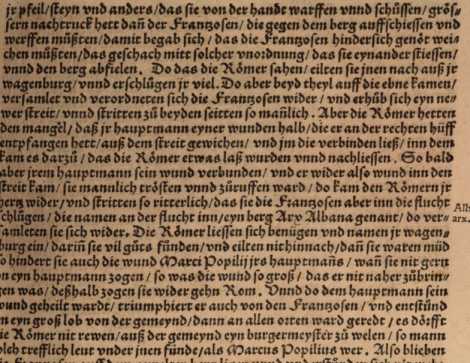 jr pfeil/steyn vnd anders/das sie von der handt warffen vnnd schüssen/grös/
sern nachtruck hett dañ der Frantzosen/die gegen dem berg auffschiessen vnd
werffen müßten/damit begab sich/das die Frantzosen hindersich genöt wei/
chen müßten/das geschach mitt solcher vnordnung/das sie eynander stiessen/
vnnd den berg abfielen. Do das die Römer sahen/eilten sie jnen nach auß jr
wagenburg/vnd erschlügen jr viel. Do aber beyd theyl auff die ebne kamen/
versamler vnd verordneten sich die Frantzosen wider/vnd erhüb sich eyn ne/
wer streit/vnnd stritten zů beyden seitten so mañlich. Aber die Römer hetten
den mangel/daß jr hauptmann eyner wunden halb/die er an der rechten hüff
entpfangen hett/auß dem streit gewichen/vnd jm die verbinden ließ/inn dem
kam es darzů/das die Römer etwas laß wurden vnnd nachliessen. So bald
aber jrem hauptmann sein wund verbunden/vnd er wider also wund inn den
streit kam/sie mannlich trösten vnnd zůruffen ward/do kam den Römern jr
hertz wider/vnd stritten so ritterlich/das sie die Frantzosen aber inn die flucht
schlügen/die namen an der flucht inn/eyn berg Arx Albana genant/do ver/
samleten sie sich wider. Die Römer liessen sich benügen vnd namen jr wagen/
burg ein/dariñ sie vil gůts fünden/vnd eilten nit hinnach/dañ sie waren müd
so hindert sie auch die wund Marci Popilij jrs hauptmañs/wañ sie nit gern
on eyn hauptmann zogen/so was die wund so groß/das er nit naher zübrin/
gen was/deßhalb zogen sie wider gehn Rom. Vnnd do dem hauptmann sein
wund geheilt wardt/triumphiert er auch von den Frantzosen/vnd entstünd
eyn groß lob von der gemeynd/dann an allen orten ward geredt/es dörfft
die Römer nit rewen/auß der gemeynd eyn burgermeyster zů welen/so mann
solch trefflich leut vnder jnen fünde/als Marcus Popilius wer. Also blieben
Alb
arx.